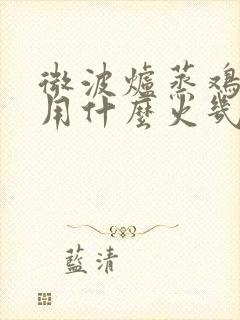 微波爐蒸鸡
用什麼火幾
藍清